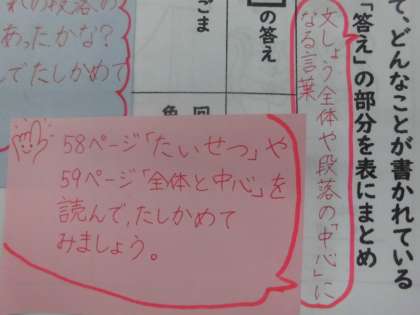 て、どんなことが書かれている
「答え」の部分を表にまとめ
文しょう全体や段落の「中心」に
なる言葉
の答え
ごま
の段落の
あったかな？
んでたしかめて
58ページ「たいせつ」や
59ページ「全体と中心」を
読んで、たしかめて
みましょう。